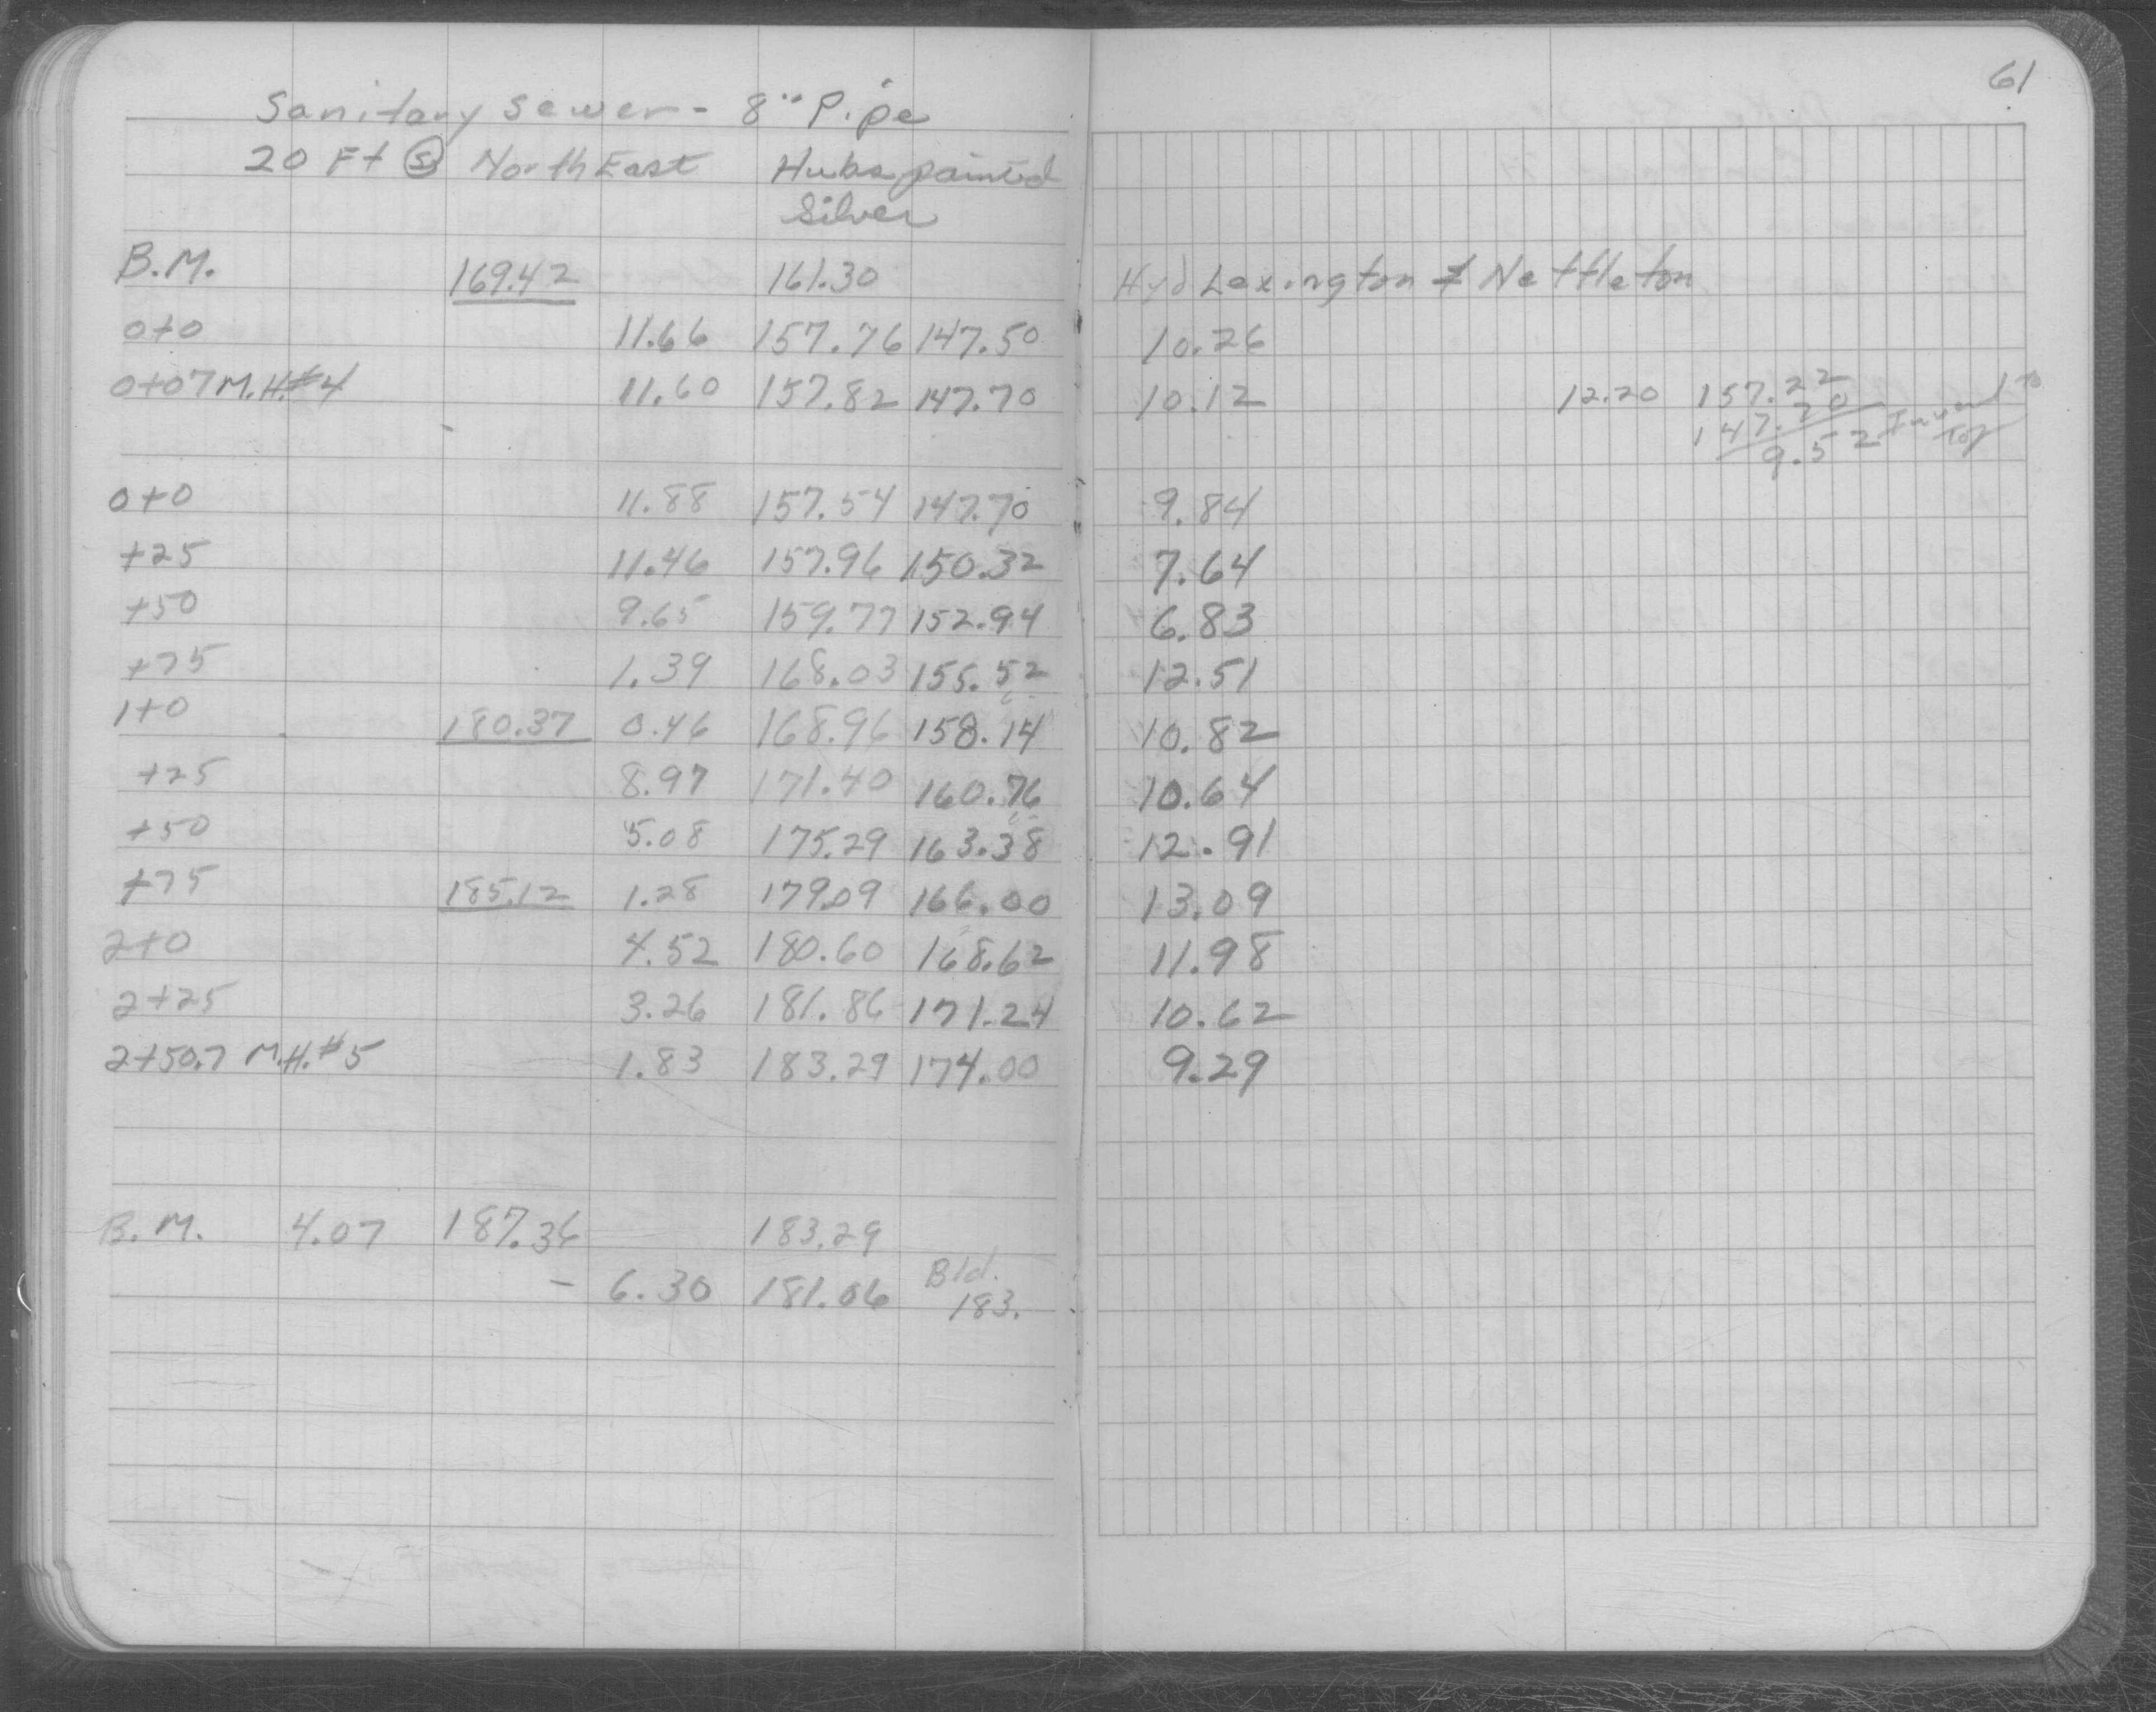 61
Sanitary Sewer - 8" Pipe
20 Ft (S) North East Hubs painted
Silver
B.M. 169.42 161.30 Hyd Lexington & Nettleton
0+0 11.66 157.76 147.50 10.26
0+07 M.H.#4 11.60 157.82 147.70 10.12 12.20 157.22
147.70
9.52 Invert to Top
0+0 11.88 157.54 147.70 9.84
+25 11.46 157.96 150.32 7.64
+50 9.65 159.77 152.94 6.83
+75 1.39 168.03 155.52 12.51
1+0 180.37 0.46 168.96 158.14 10.82
+25 8.97 171.40 160.76 10.64
+50 5.08 175.29 163.38 12.91
+75 185.12 1.28 179.09 166.00 13.09
2+0 4.52 180.60 168.62 11.98
2+25 3.26 181.86 171.24 10.62
2+50.7 M.H.#5 1.83 183.29 174.00 9.29
B.M. 4.07 187.36 183.29
- 6.30 181.06 Bld.
183.